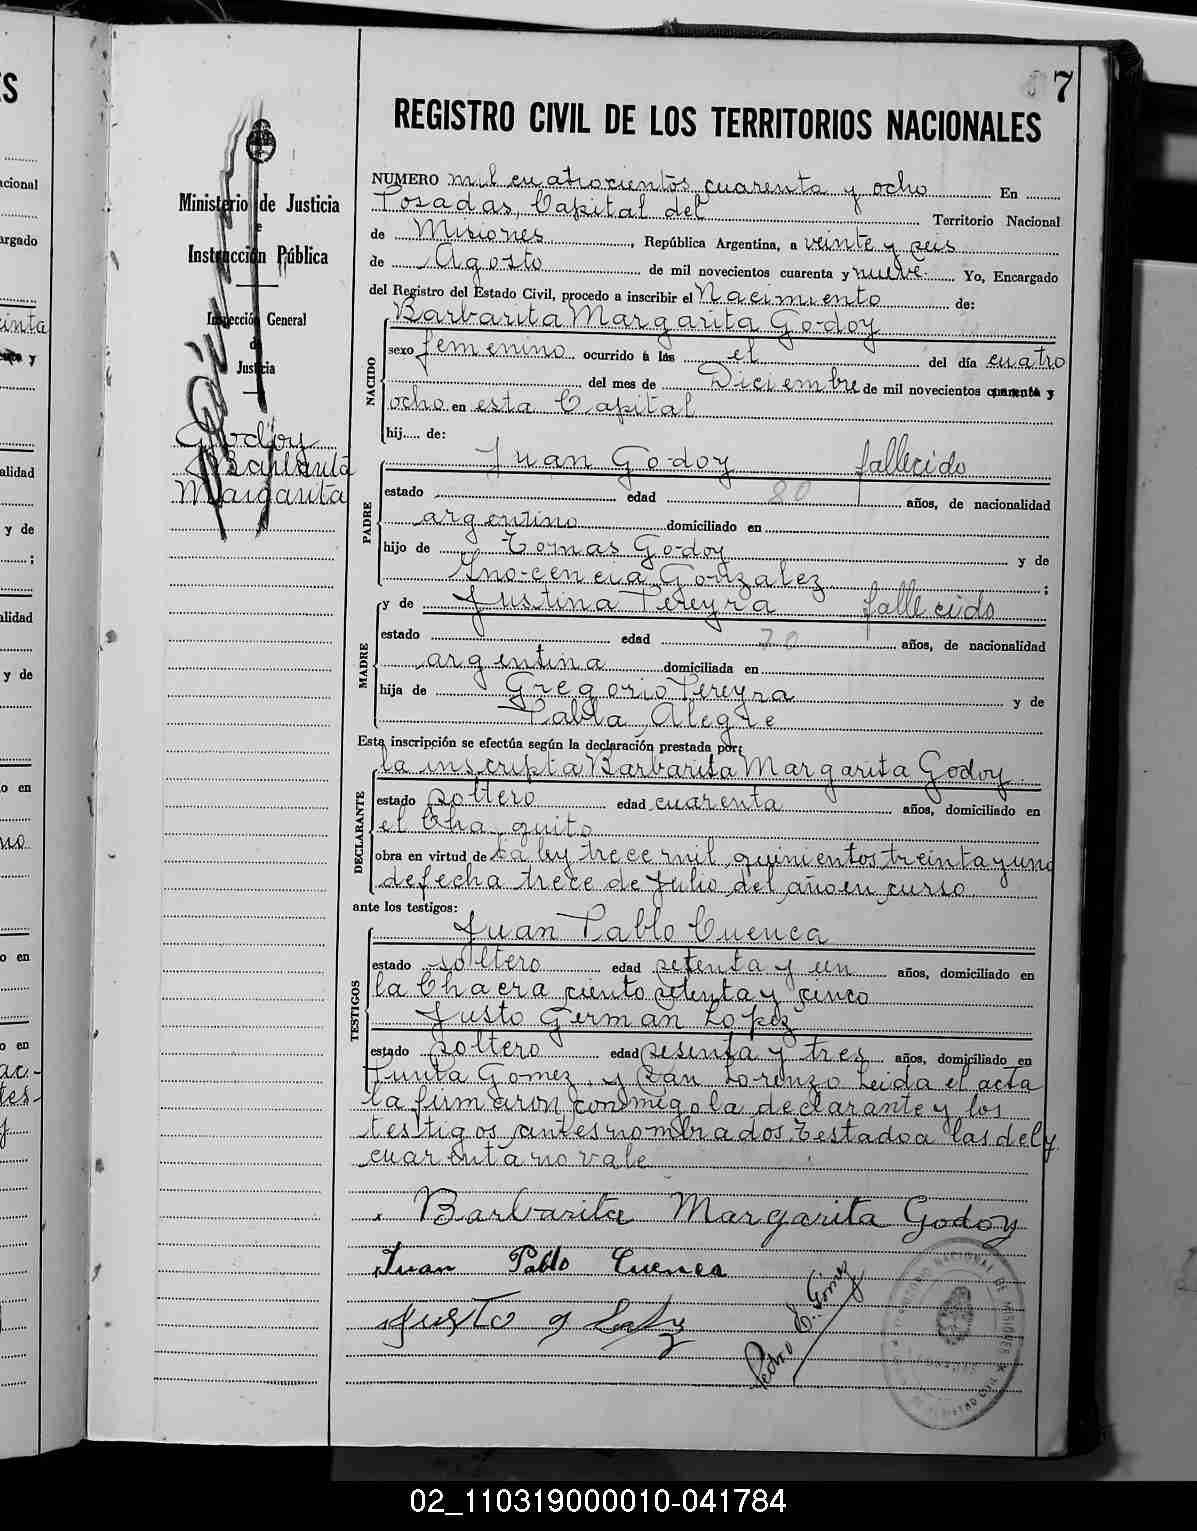 7
REGISTRO CIVIL DE LOS TERRITORIOS NACIONALES
Ministerio de Justicia
e
Instrucción Pública
Inspección General
de
Justicia
Godoy
Barbarita
Margarita
NUMERO mil cuatrocientos cuarenta y ocho En
Posadas, Capital del Territorio Nacional
de Misiones, República Argentina, a veinte y seis
de Agosto de mil novecientos cuarenta y nueve. Yo, Encargado
del Registro del Estado Civil, procedo a inscribir el Nacimiento de:
Barbarita Margarita Godoy
NACIDO
sexo femenino ocurrido á las el del día cuatro
del mes de Diciembre de mil novecientos cuarenta y
ocho en esta Capital
hij.... de:
Juan Godoy fallecido
PADRE
estado edad 80 años, de nacionalidad
argentino domiciliado en
hijo de Tomas Godoy y de
Inocencia Gonzalez ;
y de Justina Pereyra fallecido
MADRE
estado edad 70 años, de nacionalidad
argentina domiciliada en
hija de Gregorio Pereyra y de
Pabla Alegre
Esta inscripción se efectúa según la declaración prestada por:
la inscripta Barbarita Margarita Godoy
DECLARANTE
estado soltero edad cuarenta años, domiciliado en
el Chaquito
obra en virtud de La ley trece mil quinientos treinta y uno
de fecha trece de Julio del año en curso
ante los testigos:
Juan Pablo Cuenca
TESTIGOS
estado soltero edad setenta y un años, domiciliado en
la Chacra ciento setenta y cinco
Justo German Lopez
estado soltero edad sesenta y tres años, domiciliado en
Punta Gomez y San Lorenzo Leida el acta
la firmaron conmigo la declarante y los
testigos antes nombrados. Testado a las del y
cuarenta no vale
Barbarita Margarita Godoy
Juan Pablo Cuenca
Justo G Lopez
Pedro E. Gómez
02_110319000010-041784